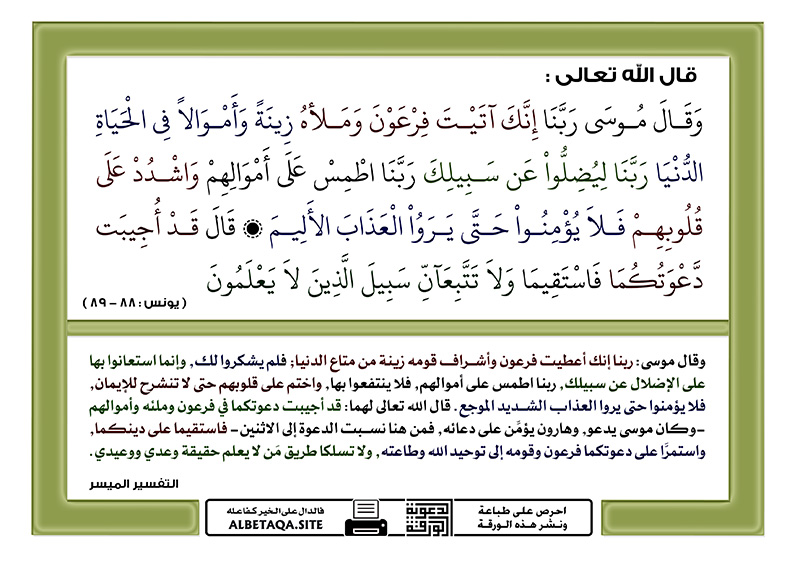 قال الله تعالى :
وَقَالَ مُوسَى رَبَّنَا إِنَّكَ آتَيْتَ فِرْعَوْنَ وَمَلأهُ زِينَةً وَأَمْوَالاً فِي الْحَيَاةِ
الدُّنْيَا رَبَّنَا لِيُضِلُّواْ عَن سَبِيلِكَ رَبَّنَا اطْمِسْ عَلَى أَمْوَالِهِمْ وَاشْدُدْ عَلَى
قُلُوبِهِمْ فَلاَ يُؤْمِنُواْ حَتَّى يَرَوُاْ الْعَذَابَ الأَلِيمَ ۞ قَالَ قَدْ أُجِيبَت
دَّعْوَتُكُمَا فَاسْتَقِيمَا وَلاَ تَتَّبِعَآنِّ سَبِيلَ الَّذِينَ لاَ يَعْلَمُونَ
( يونس : ٨٨ - ٨٩ )
وقال موسى: ربنا إنك أعطيت فرعون وأشراف قومه زينة من متاع الدنيا; فلم يشكروا لك, وإنما استعانوا بها
على الإضلال عن سبيلك, ربنا اطمس على أموالهم, فلا ينتفعوا بها, واختم على قلوبهم حتى لا تنشرح للإيمان,
فلا يؤمنوا حتى يروا العذاب الشديد الموجع. قال الله تعالى لهما: قد أجيبت دعوتكما في فرعون وملئه وأموالهم
-وكان موسى يدعو, وهارون يؤمِّن على دعائه, فمن هنا نسبت الدعوة إلى الاثنين- فاستقيما على دينكما,
واستمرَّا على دعوتكما فرعون وقومه إلى توحيد الله وطاعته, ولا تسلكا طريق مَن لا يعلم حقيقة وعدي ووعيدي.
التفسير الميسر
احرص على طباعة
ونشر هذه الورقة
الورقة
الدعوية
فالدال على الخير كفاعله
ALBETAQA.SITE